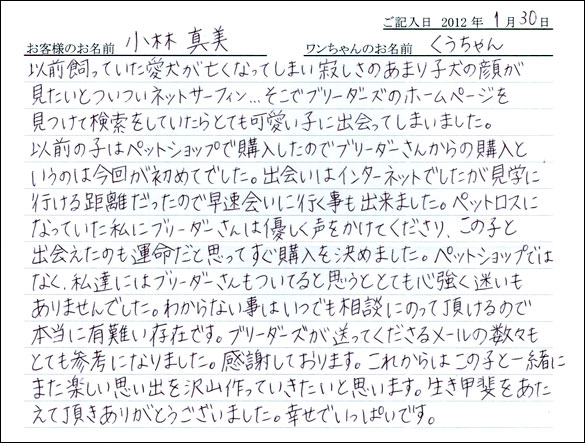 ご記入日 2012 年 1 月 30 日
お客様のお名前 小林 真美 ワンちゃんのお名前 くうちゃん
以前飼っていた愛犬が亡くなってしまい寂しさのあまり子犬の顔が
見たいとついついネットサーフィン…そこでブリーダーズのホームページを
見つけて検索をしていたらとても可愛い子に出会ってしまいました。
以前の子はペットショップで購入したのでブリーダーさんからの購入と
いうのは今回が初めてでした。出会いはインターネットでしたが見学に
行ける距離だったので早速会いに行く事も出来ました。ペットロスに
なっていた私にブリーダーさんは優しく声をかけてくださり、この子と
出会えたのも運命だと思ってすぐ購入を決めました。ペットショップでは
なく、私達にはブリーダーさんもついてると思うととても心強く迷いも
ありませんでした。わからない事はいつでも相談にのって頂けるので
本当に有難い存在です。ブリーダーズが送ってくださるメールの数々も
とても参考になりました。感謝しております。これからはこの子と一緒に
また楽しい思い出を沢山作っていきたいと思います。生き甲斐をあた
えて頂きありがとうございました。幸せでいっぱいです。